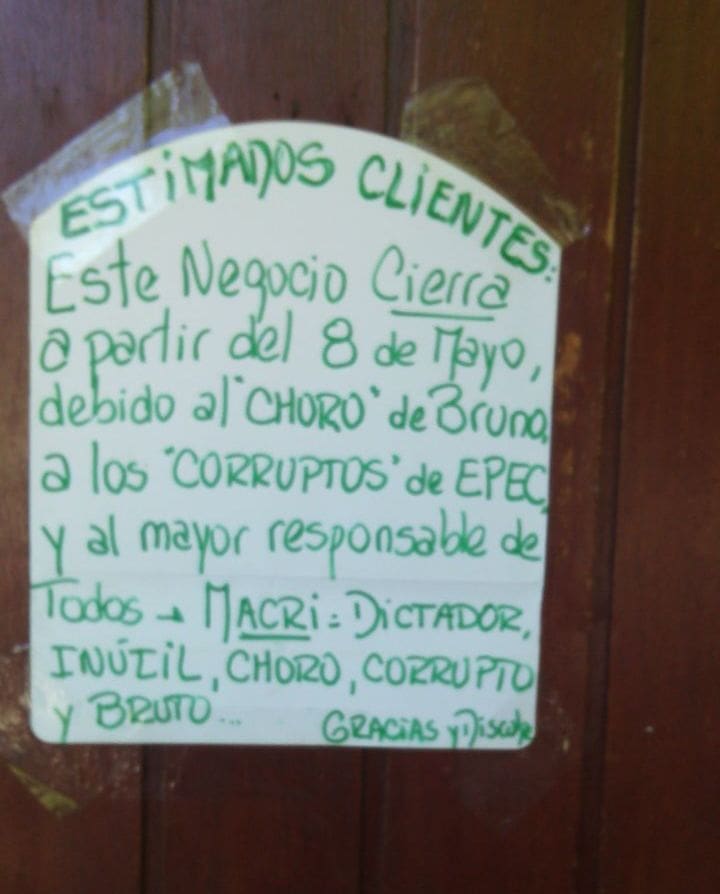 ESTiMADOS CLiENTES:
Este Negocio Cierra
a partir del 8 de Mayo,
debido al "CHORO" de Bruno,
a los "CORRUPTOS" de EPEC,
y al mayor responsable de
Todos → MACRi: DiCTADOR,
INÚTiL, CHORO, CORRUPTO
y BRUTO...
GRACiAS y